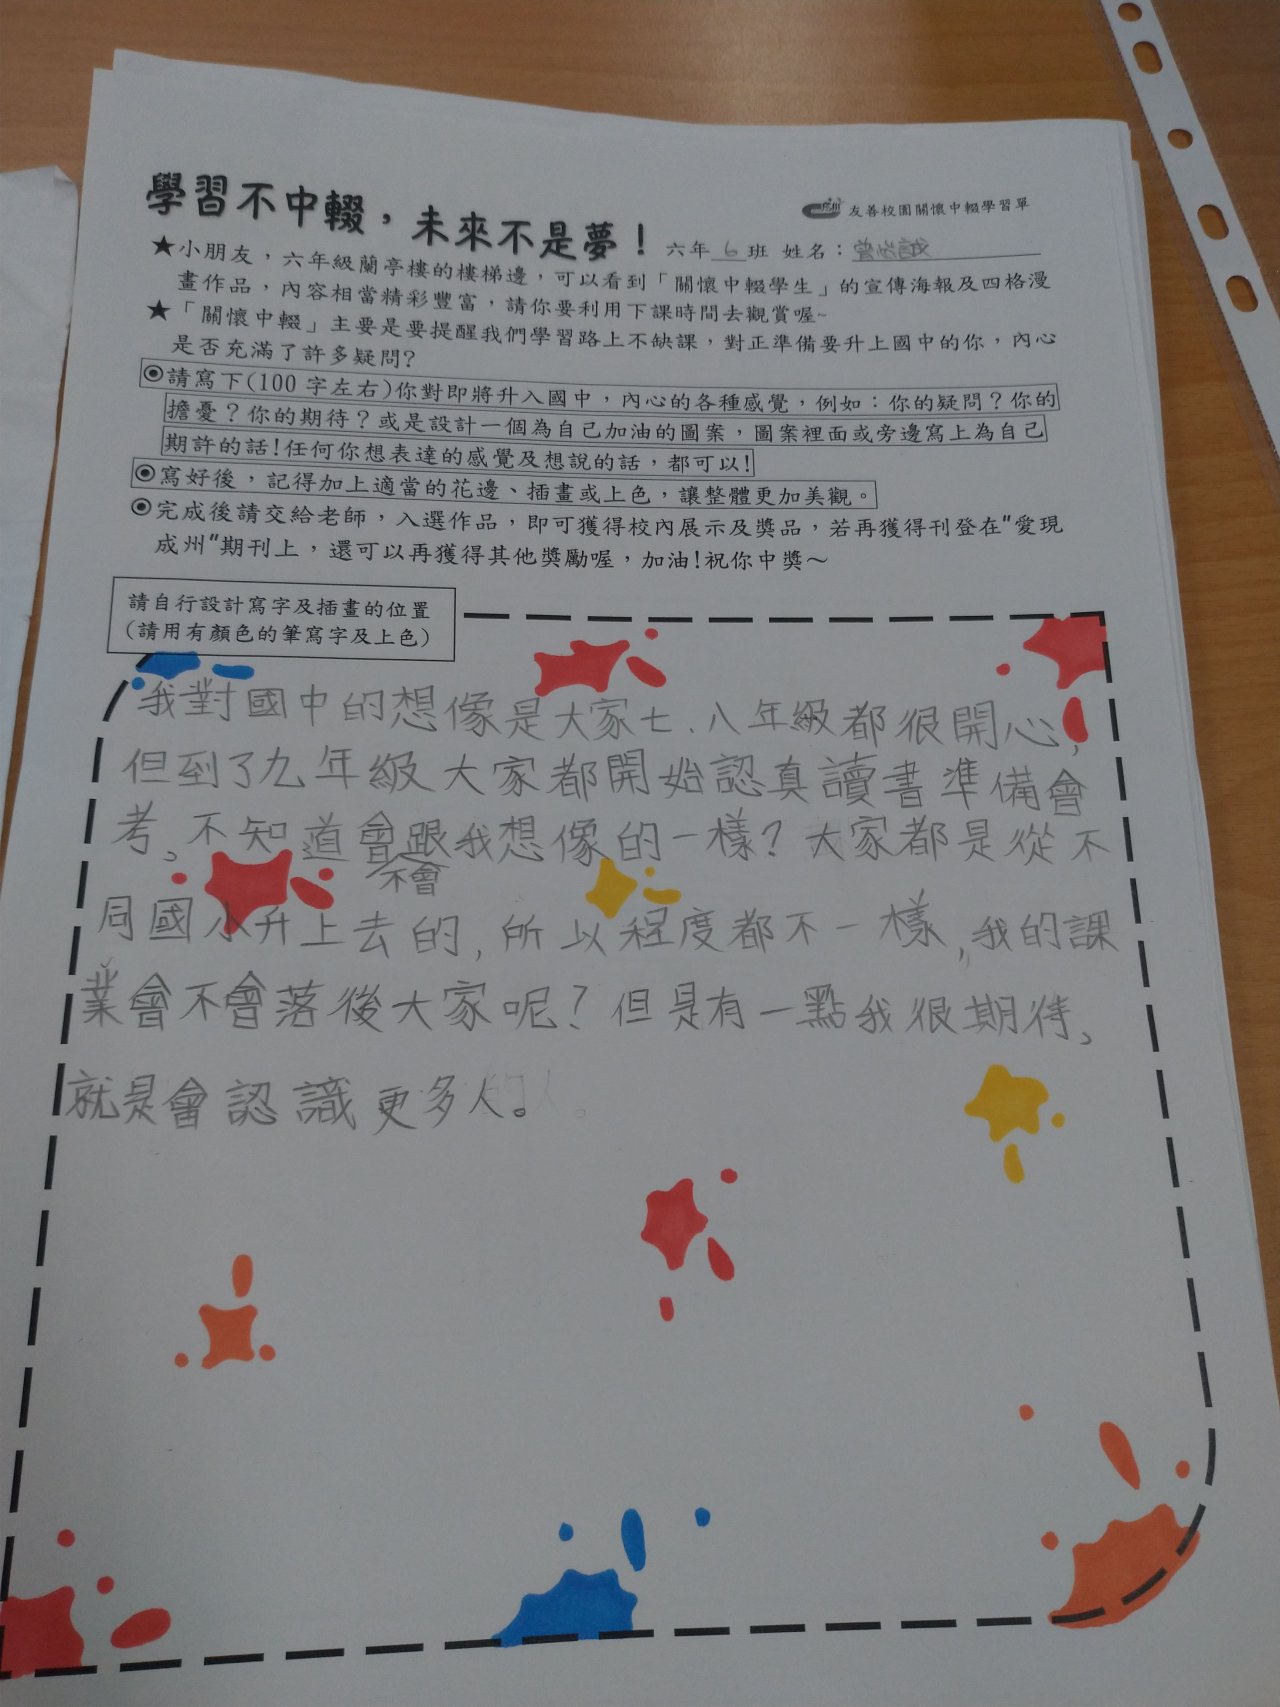 學習不中輟，未來不是夢！
友善校園關懷中輟學習單
六年 6 班 姓名：
★小朋友，六年級蘭亭樓的樓梯邊，可以看到「關懷中輟學生」的宣傳海報及四格漫
畫作品，內容相當精彩豐富，請你要利用下課時間去觀賞喔~
★「關懷中輟」主要是要提醒我們學習路上不缺課，對正準備要升上國中的你，內心
是否充滿了許多疑問?
◉請寫下(100 字左右)你對即將升入國中，內心的各種感覺，例如：你的疑問？你的
擔憂？你的期待？或是設計一個為自己加油的圖案，圖案裡面或旁邊寫上為自己
期許的話!任何你想表達的感覺及想說的話，都可以!
◉寫好後，記得加上適當的花邊、插畫或上色，讓整體更加美觀。
◉完成後請交給老師，入選作品，即可獲得校內展示及獎品，若再獲得刊登在"愛現
成州"期刊上，還可以再獲得其他獎勵喔，加油!祝你中獎～
請自行設計寫字及插畫的位置
(請用有顏色的筆寫字及上色)
我對國中的想像是大家七、八年級都很開心，
但到了九年級大家都開始認真讀書準備會
考、不知道會跟我想像的一樣？大家都是從不
不會
同國小升上去的，所以程度都不一樣，我的課
業會不會落後大家呢？但是有一點我很期待、
就是會認識更多人。